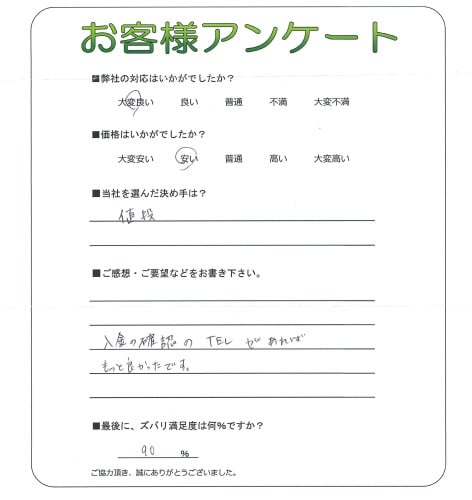 お客様アンケート
■弊社の対応はいかがでしたか？
大変良い 良い 普通 不満 大変不満
■価格はいかがでしたか？
大変安い 安い 普通 高い 大変高い
■当社を選んだ決め手は？
値段
■ご感想・ご要望などをお書き下さい。
入金の確認のTELがあれば
もっと良かったです。
■最後に、ズバリ満足度は何%ですか？
90 %
ご協力頂き、誠にありがとうございました。